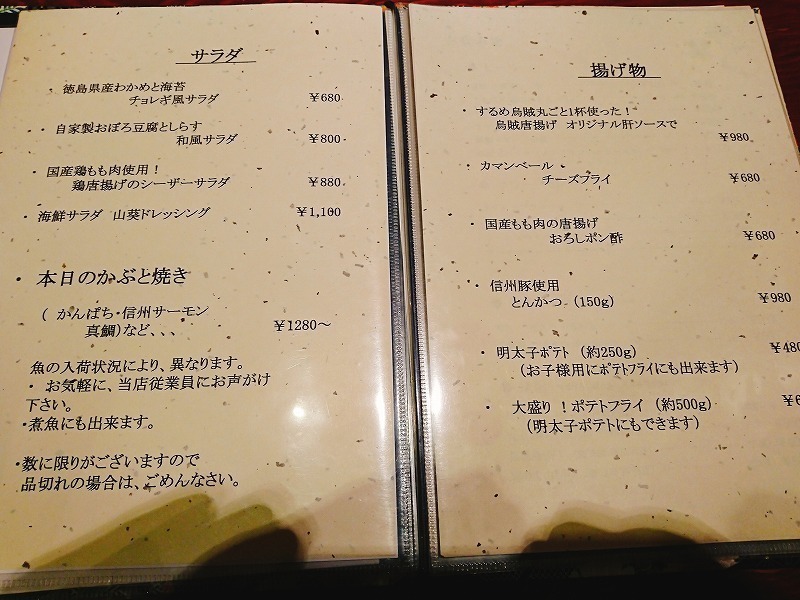 サラダ
・ 徳島県産わかめと海苔
チョレギ風サラダ ￥680
・ 自家製おぼろ豆腐としらす
和風サラダ ￥800
・ 国産鶏もも肉使用！
鶏唐揚げのシーザーサラダ ￥880
・ 海鮮サラダ 山葵ドレッシング ￥1,100
・ 本日のかぶと焼き
( がんぱち・信州サーモン
真鯛)など、、、 ￥1280～
魚の入荷状況により、異なります。
・ お気軽に、当店従業員にお声がけ
下さい。
・煮魚にも出来ます。
・数に限りがございますので
品切れの場合は、ごめんなさい。
揚げ物
・ するめ烏賊丸ごと1杯使った！
烏賊唐揚げ オリジナル肝ソースで
￥980
・ カマンベール
チーズフライ ￥680
・ 国産もも肉の唐揚げ
おろしポン酢 ￥680
・ 信州豚使用
とんかつ (150g) ￥980
・ 明太子ポテト (約250g) ￥480
(お子様用にポテトフライにも出来ます)
・ 大盛り！ポテトフライ (約500g)
(明太子ポテトにもできます)